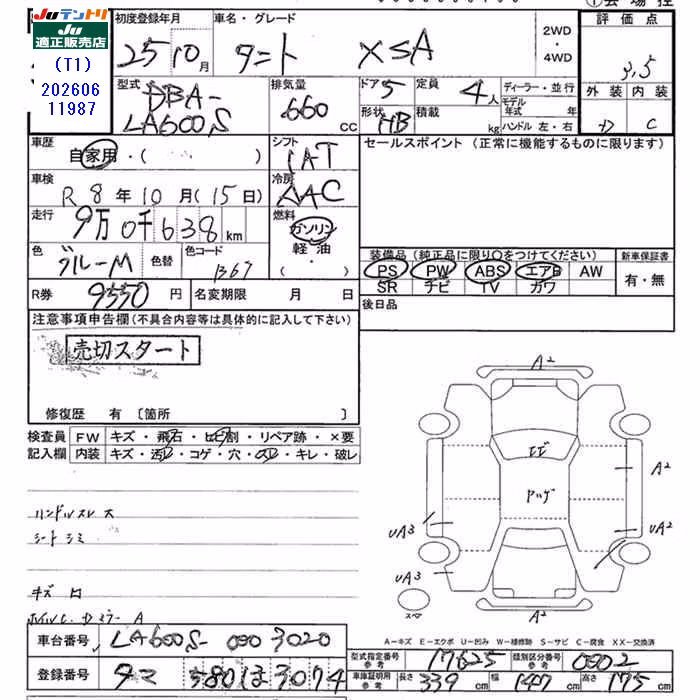 JUテントリ
JU
適正販売店
(T1)
202606
11987
初度登録年月
25 10月
車名・グレード
タント XSA
2WD
・
4WD
評価点
3.5
型式
DBA-
LA600S
排気量
660
CC
ドア
5
定員
4人
形状
HB
積載
kg
ディーラー・並行
モデル
年式 年
ハンドル 左・右
外装
D
内装
C
車歴
自家用・( )
シフト
IAT
セールスポイント (正常に機能するものに限ります)
車検
R 8年10月(15日)
冷房
AAC
走行
9万0千638km
燃料
ガソリン
軽油・
( )
色
ブルーM
色替
色コード
B67
装備品 (純正品に限り○をつけてください)
PS PW ABS エアB AW
SR ナビ TV カワ
新車保証書
有・無
R券
9550円
名変期限 月 日
後日品
注意事項申告欄(不具合内容等は具体的に記入して下さい)
売切スタート
修復歴 有 [箇所 ]
検査員
記入欄
FW キズ・飛石・ヒビ割・リペア跡・×要
内装 キズ・汚・コゲ・穴・スレ・キレ・破レ
ハンドルスレ大
シートシミ
キズ
A2
ヒビ
A2
UA3
UA2
UA3
A2
スペア
A-キズ E-エクボ U-凹み W-補修跡 S-サビ C-腐食 XX-交換済
車台番号
LA600S-0903020
登録番号
タマ 580ほ3074
型式指定番号
参考
17625
類別区分番号
参考
0902
車庫証明用
参考
長さ 339cm
幅 147cm
高さ 175cm